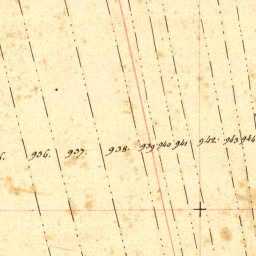 936. 937. 938. 939. 940. 941. 942. 943. 944